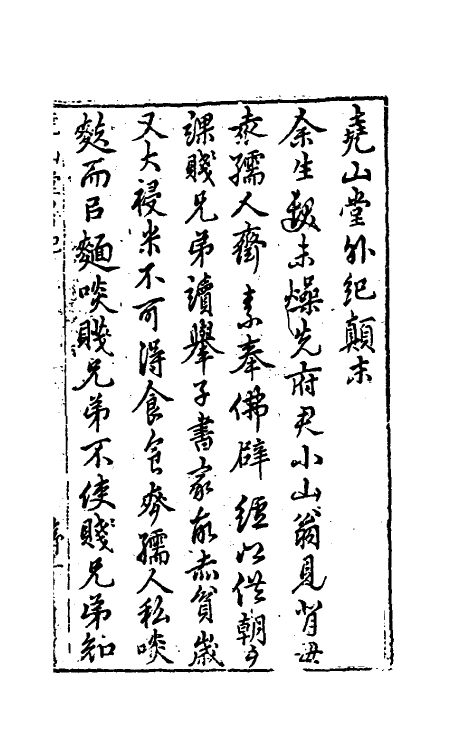 堯山堂外紀顛末
余生髮未燥先府君小山翁見背毋
孺人齋素奉佛辟纑以供朝夕
課賤兄弟讀舉子書家故赤貧歲
又大祲米不可得食食齊孺人私啖
麩而㠯麵啖賤兄弟不使賤兄弟知